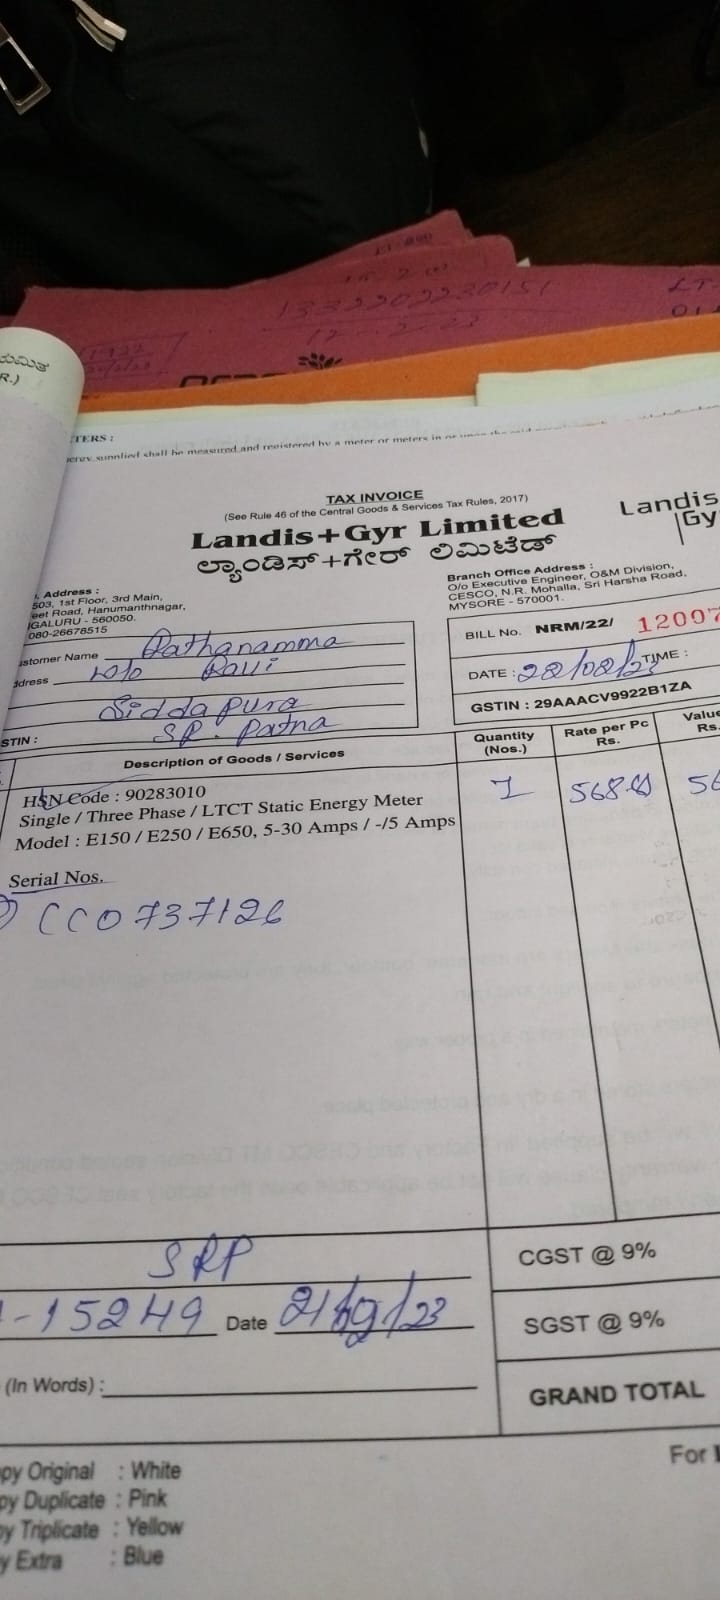 LT-800
1332202230151
12-2-23
LT-
ಯಮಿತ
R.)
TERS :
supplied shall be measured and registered by a meter or meters in
TAX INVOICE
(See Rule 46 of the Central Goods & Services Tax Rules, 2017)
Landis+Gyr Limited
ಲ್ಯಾಂಡಿಸ್+ಗೇರ್ ಲಿಮಿಟೆಡ್
Landis
Gy
. Address :
503, 1st Floor, 3rd Main,
eet Road, Hanumanthnagar,
IGALURU - 560050.
080-26678515
Branch Office Address :
O/o Executive Engineer, O&M Division,
CESCO, N.R. Mohalla, Sri Harsha Road,
MYSORE - 570001.
ustomer Name Rathanamma
ddress W/o Ravi
Siddapura
STIN : S.R. Patna
BILL No. NRM/22/ 12007
DATE : 28/08/23 TIME :
GSTIN : 29AAACV9922B1ZA
Description of Goods / Services
Quantity (Nos.)
Rate per Pc Rs.
Value Rs.
HSN Code : 90283010
Single / Three Phase / LTCT Static Energy Meter
Model : E150 / E250 / E650, 5-30 Amps / -/5 Amps
1 568.81 56
Serial Nos.
CC0737126
SRP
-15249 Date 21/09/23
(In Words) :
CGST @ 9%
SGST @ 9%
GRAND TOTAL
For
py Original : White
py Duplicate : Pink
y Triplicate : Yellow
y Extra : Blue